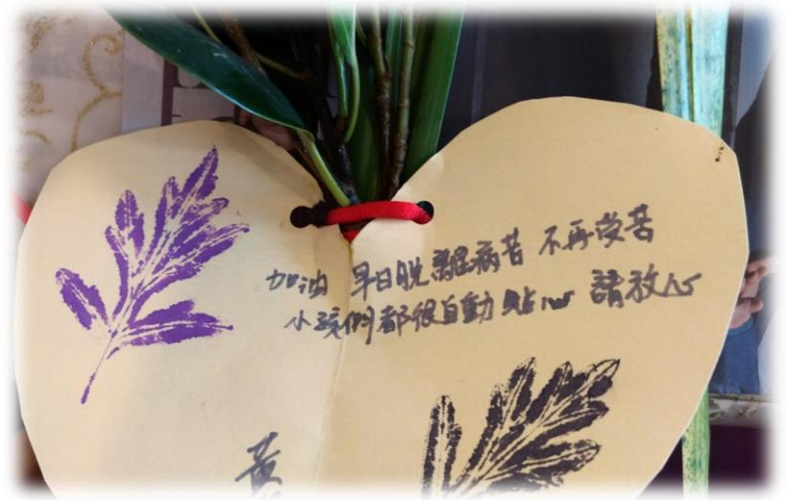 加油 早日脫離病苦 不再受苦
小孩們都很自動貼心 請放心
黃